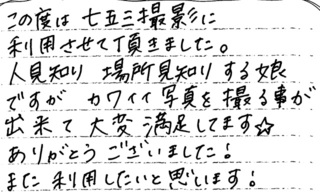 この度は七五三撮影に
利用させて頂きました。
人見知り 場所見知りする娘
ですが カワイイ写真を撮る事が
出来て大変満足してます☆
ありがとうございました!
また利用したいと思います!